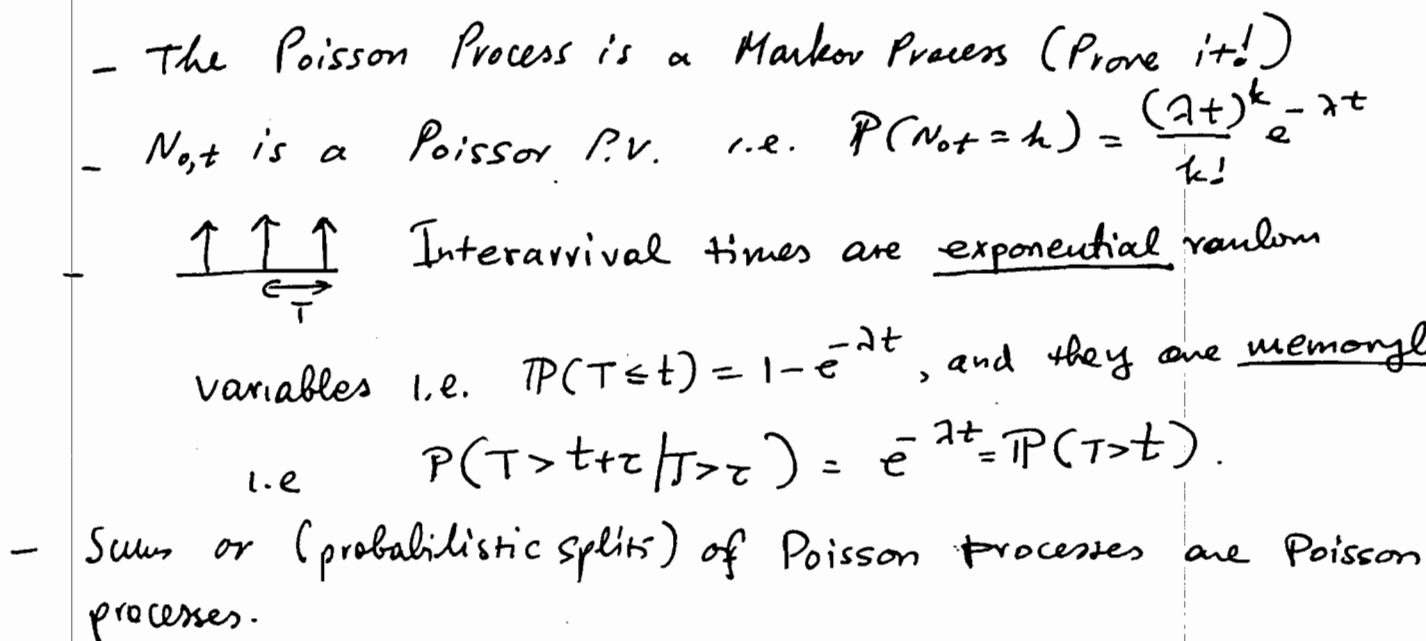 - The Poisson Process is a Markov Process (Prove it!)
- N₀,t is a Poisson R.V. i.e. P(N₀t = k) = (λt)^k / k! e^-λt
- Interarrival times are exponential random
T
variables i.e. P(T ≤ t) = 1 - e^-λt, and they are memoryl
i.e P(T > t+τ | T > τ) = e^-λt = P(T > t).
- Sums or (probabilistic splits) of Poisson processes are Poisson
processes.